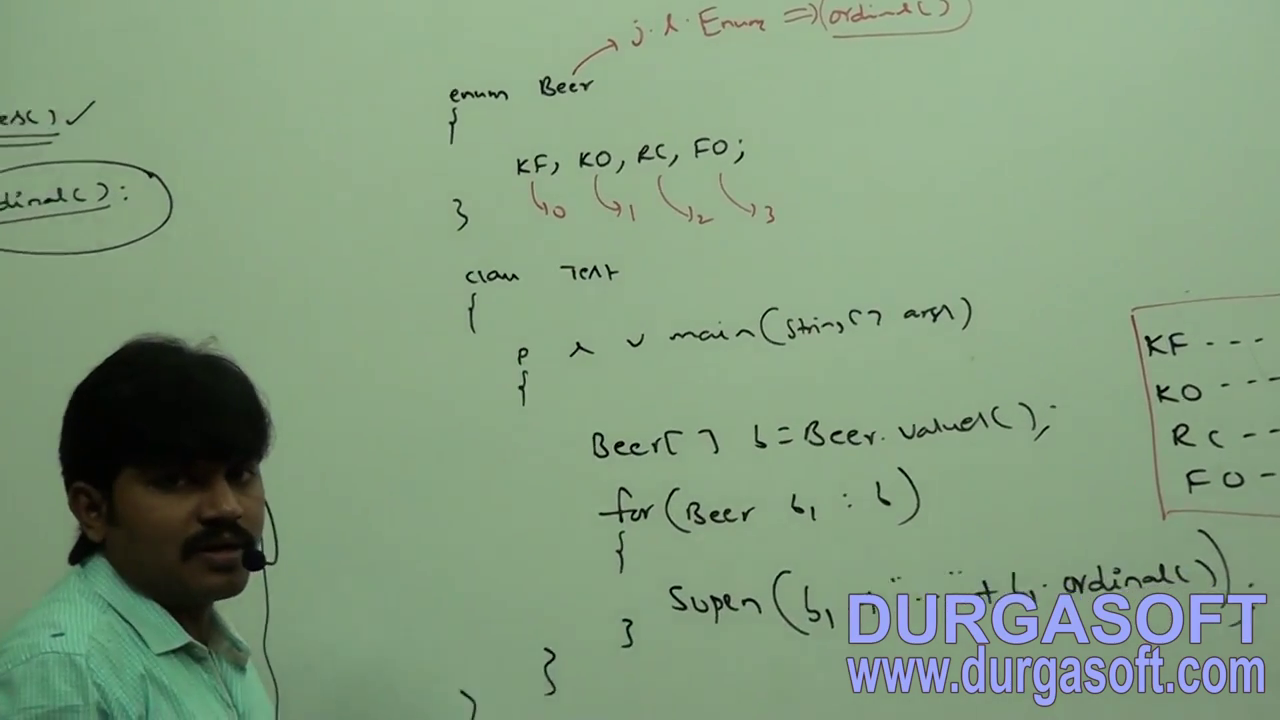 j.l.Enum => (ordinal()
enum Beer
{
KF, KO, RC, FO;
0 1 2 3
}
class Test
{
p s v main(String[] args)
{
Beer[] b = Beer.values();
for(Beer b1 : b)
{
Sopln(b1 + b1.ordinal());
}
}
}
KF ---
KO ---
RC --
FO -
DURGASOFT
www.durgasoft.com